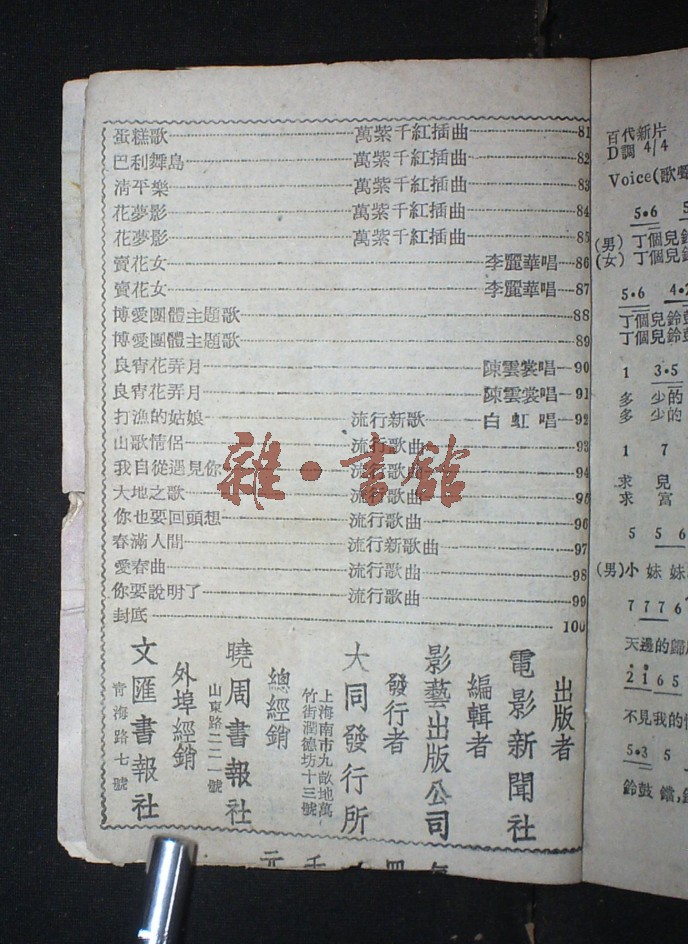 蛋糕歌 萬紫千紅插曲 81
巴利舞島 萬紫千紅插曲 82
清平樂 萬紫千紅插曲 83
花夢影 萬紫千紅插曲 84
花夢影 萬紫千紅插曲 85
賣花女 李麗華唱 86
賣花女 李麗華唱 87
博愛團體主題歌 88
博愛團體主題歌 89
良宵花弄月 陳雲裳唱 90
良宵花弄月 陳雲裳唱 91
打漁的姑娘 流行新歌 白虹唱 92
山歌情侶 流行歌曲 93
我自從遇見你 流行歌曲 94
大地之歌 流行歌曲 95
你也要回頭想 流行歌曲 96
春滿人間 流行新歌曲 97
愛春曲 流行歌曲 98
你要說明了 流行歌曲 99
封底 100
雜·書館
出版者
電影新聞社
編輯者
影藝出版公司
發行者
大同發行所
上海南市九畝地萬
竹街潤德坊十三號
總經銷
曉周書報社
山東路二二一號
外埠經銷
文匯書報社
青海路七號
百代新片
D調 4/4
Voice(歌聲
5·6 5
(男) 丁個兒鈴
(女) 丁個兒鈴
5·6 4·2
丁個兒鈴鼓
丁個兒鈴鼓
1 3·5
多 少的
多 少的
1 7
求 兒
求 富
5 5 6
(男)小 妹 妹
7 7 7 6
天邊的歸
2 1 6 5
不見我的情
5·3 5
鈴鼓 鐺,